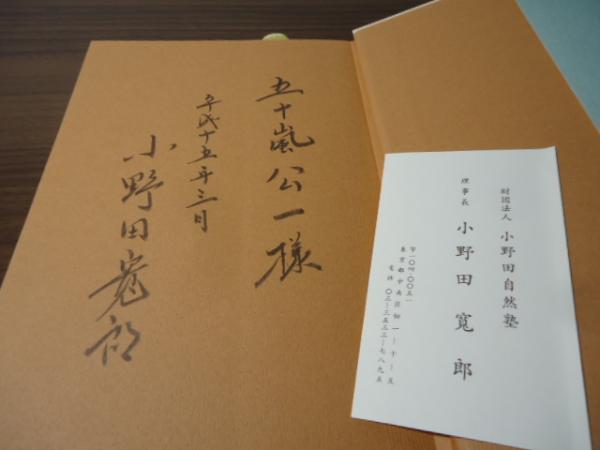 五十嵐公一様
平成十五年三月
小野田寛郎
財団法人 小野田自然塾
理事長 小野田寛郎
〒一〇四-〇〇五一
東京都中央区佃一-十-五
電話 〇三-三五三三-七八九五